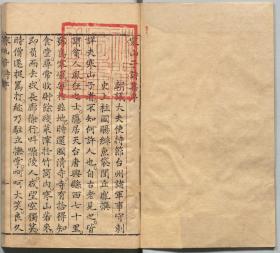 寒山子詩集序
朝議大夫使持節台州諸軍事守刺
史上柱國賜緋魚袋閭丘胤撰
詳夫寒山子者不知何許人也自古老見之皆
謂貧人風狂之士隱居天台唐興縣西七十里
號為寒巖每於此地時還國清寺寺有拾得知
食堂尋常收貯餘殘菜滓於竹筒內寒山若來
即負而去或長廊徐行叫噪陵人或望空獨笑
時僧遂捉罵打趁乃駐立撫掌呵呵大笑良久